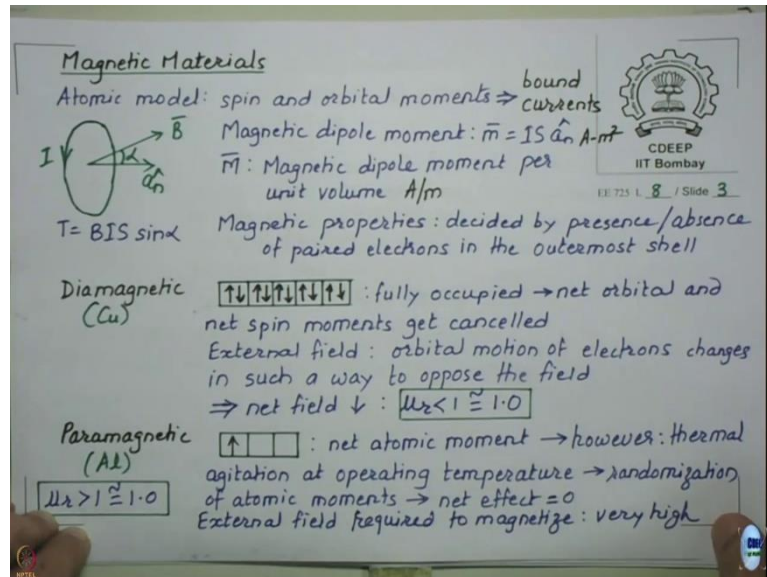 Magnetic Materials
Atomic model: spin and orbital moments ⇒ bound currents
I B̄ α ân
Magnetic dipole moment: m̄ = IS ân A-m²
CDEEP
IIT Bombay
M̄: Magnetic dipole moment per
unit volume A/m
EE 725 L 8 / Slide 3
T = BIS sinα
Magnetic properties: decided by presence/absence
of paired electrons in the outermost shell
Diamagnetic ↑↓ ↑↓ ↑↓ ↑↓ ↑↓ : fully occupied → net orbital and
(Cu)
net spin moments get cancelled
External field: orbital motion of electrons changes
in such a way to oppose the field
⇒ net field ↓ : μr < 1 ≅ 1.0
Paramagnetic ↑ : net atomic moment → however: thermal
(Al)
agitation at operating temperature → randomization
μr > 1 ≅ 1.0
of atomic moments → net effect = 0
External field required to magnetize: very high
NPTEL